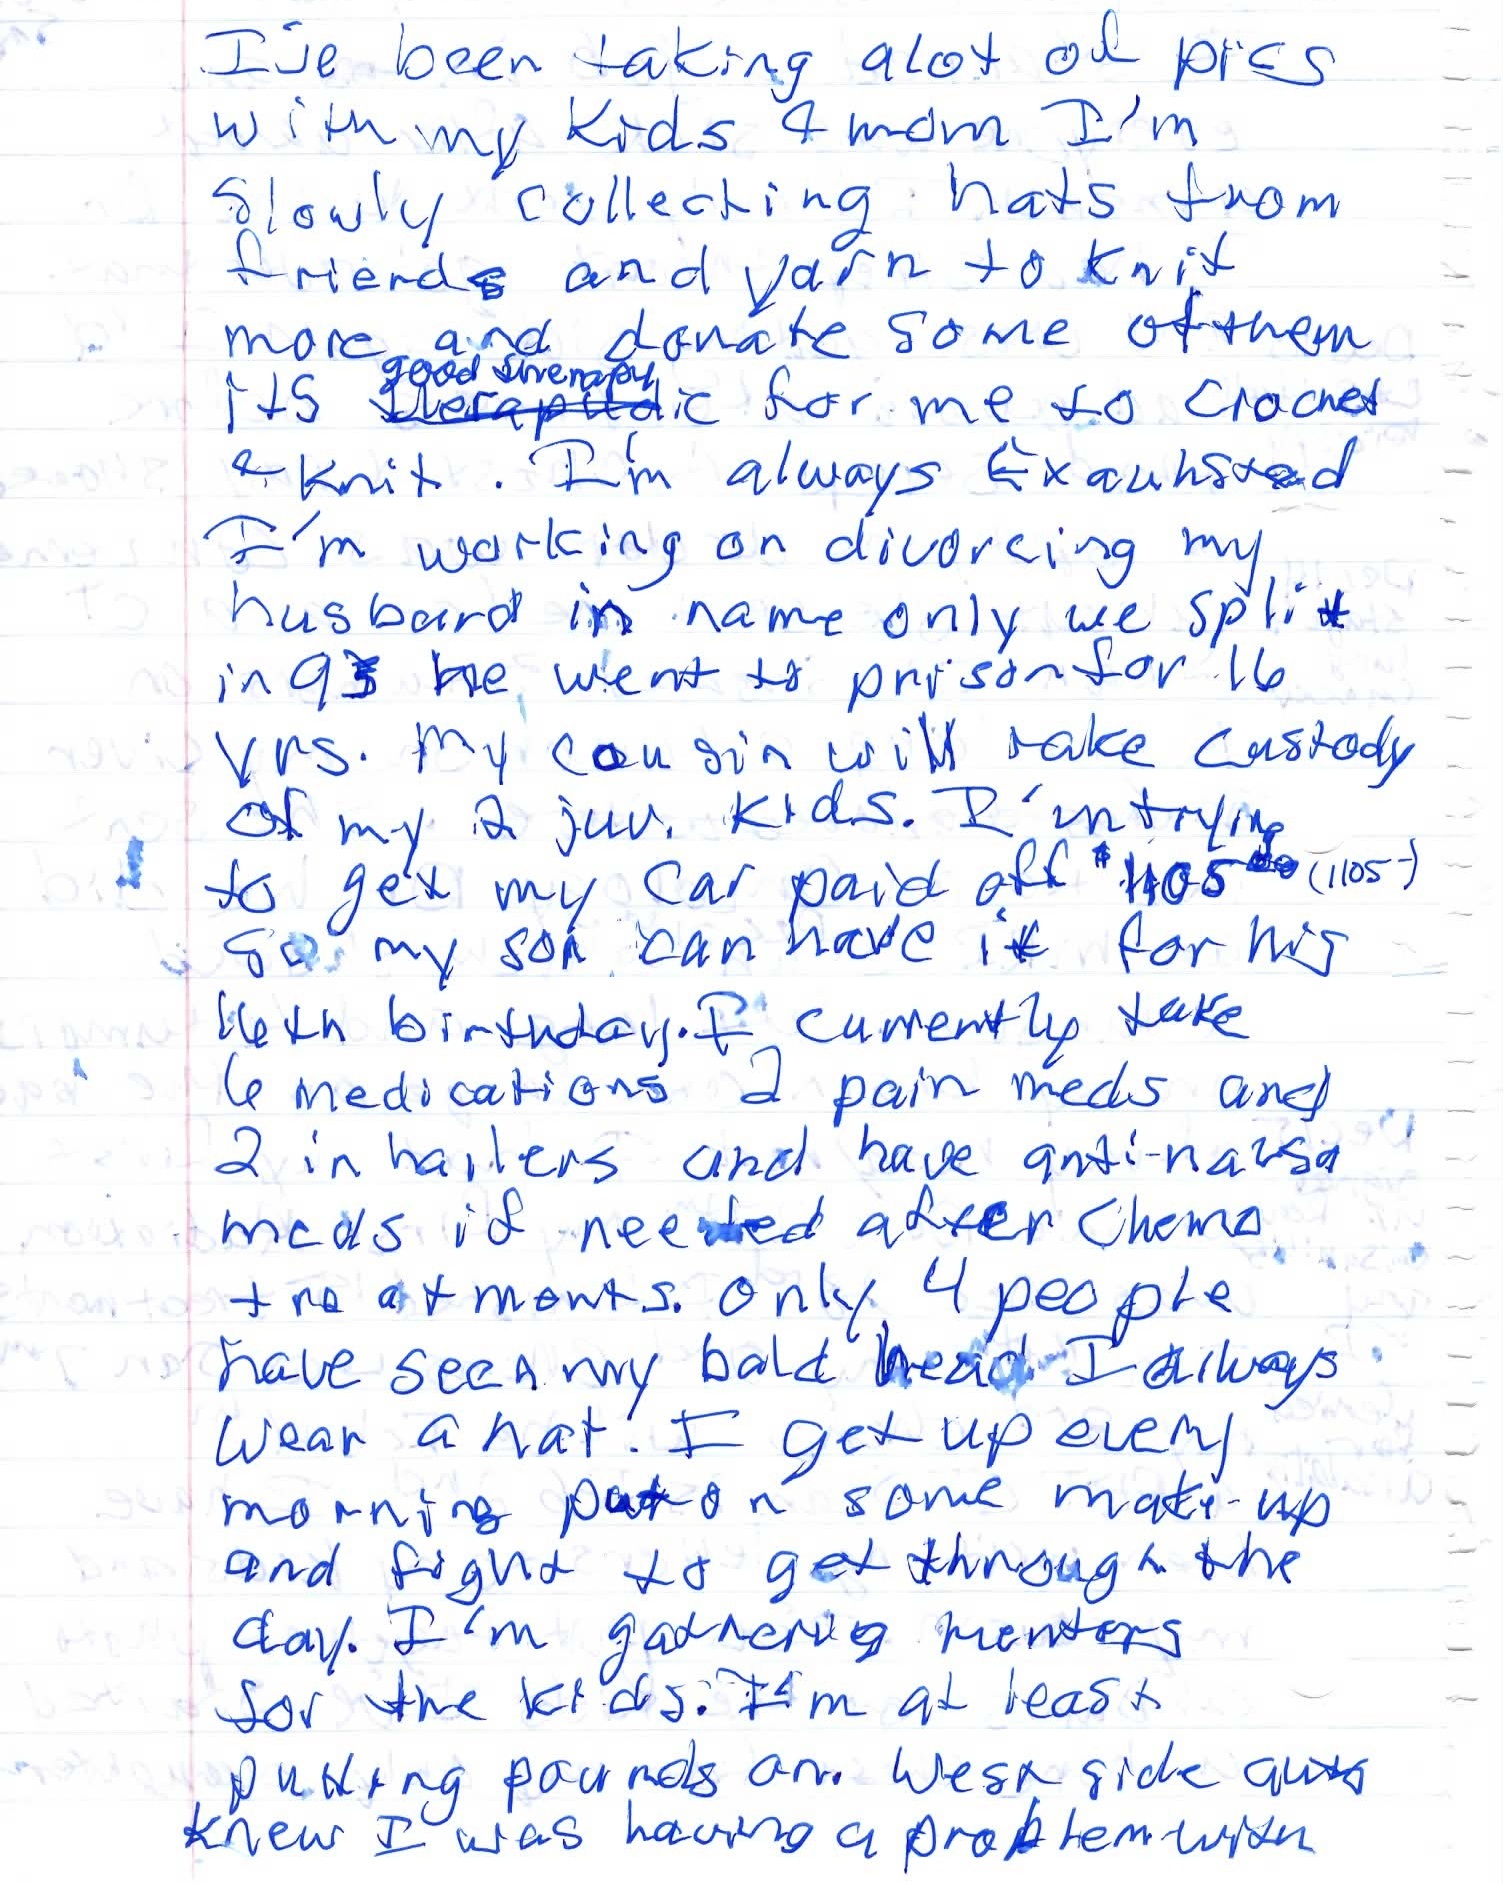 I've been taking alot of pics
with my kids & mom I'm
slowly collecting hats from
friends and yarn to knit
more and donate some of them
its good therapy for me to crochet
& knit. I'm always Exauhsted
I'm working on divorcing my
husband in name only we split
in 93 he went to prison for 16
yrs. My cousin will take custody
of my 2 juv. kids. I'm trying
to get my car paid off $1105 (1105-)
so my son can have it for his
16th birthday. I currently take
6 medications 2 pain meds and
2 inhailers and have anti-nausa
meds if needed after chemo
treatments. only 4 people
have seen my bald head I always
wear a hat. I get up every
morning put on some make-up
and fight to get through the
day. I'm gathering menters
for the kids. I'm at least
putting pounds on. West side auto
knew I was having a problem with